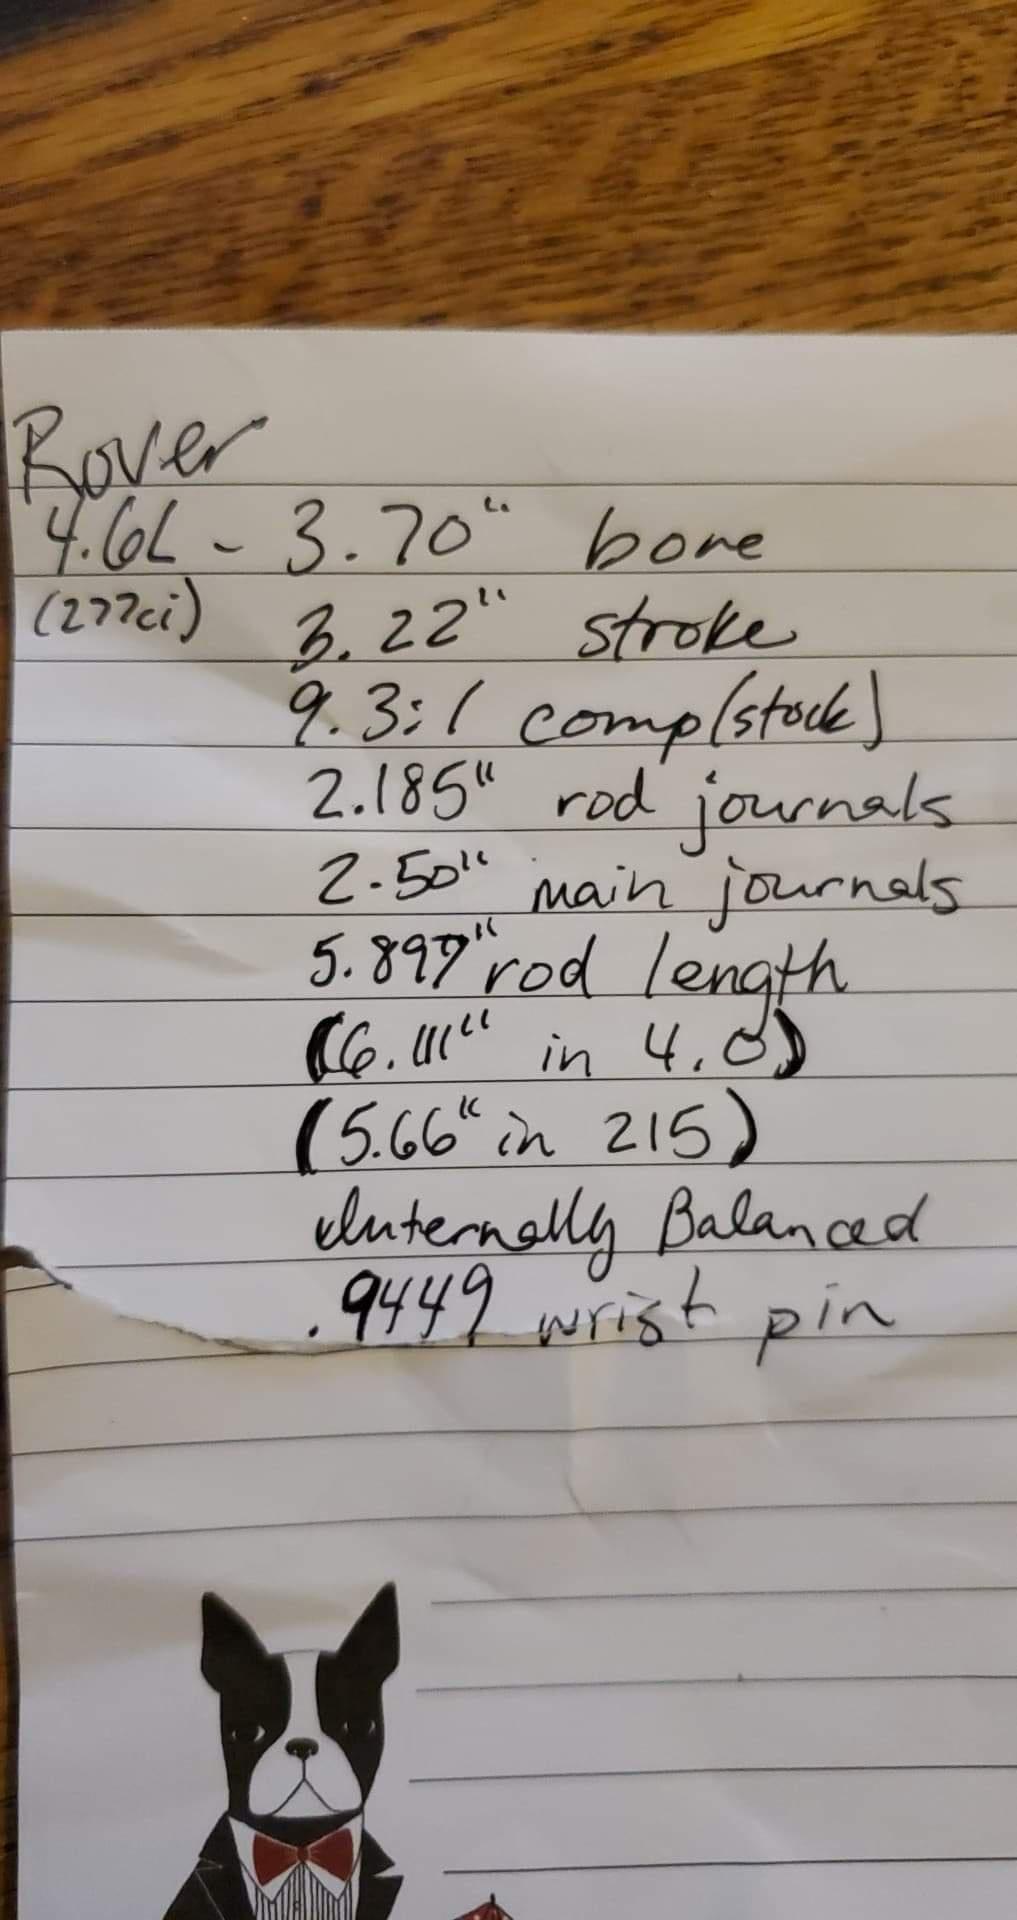 Rover
4.6L - 3.70" bore
(277ci) 3.22" stroke
9.3:1 comp(stock)
2.185" rod journals
2.50" main journals
5.897" rod length
(6.111" in 4.0)
(5.66" in 215)
Internally Balanced
.9449 wrist pin